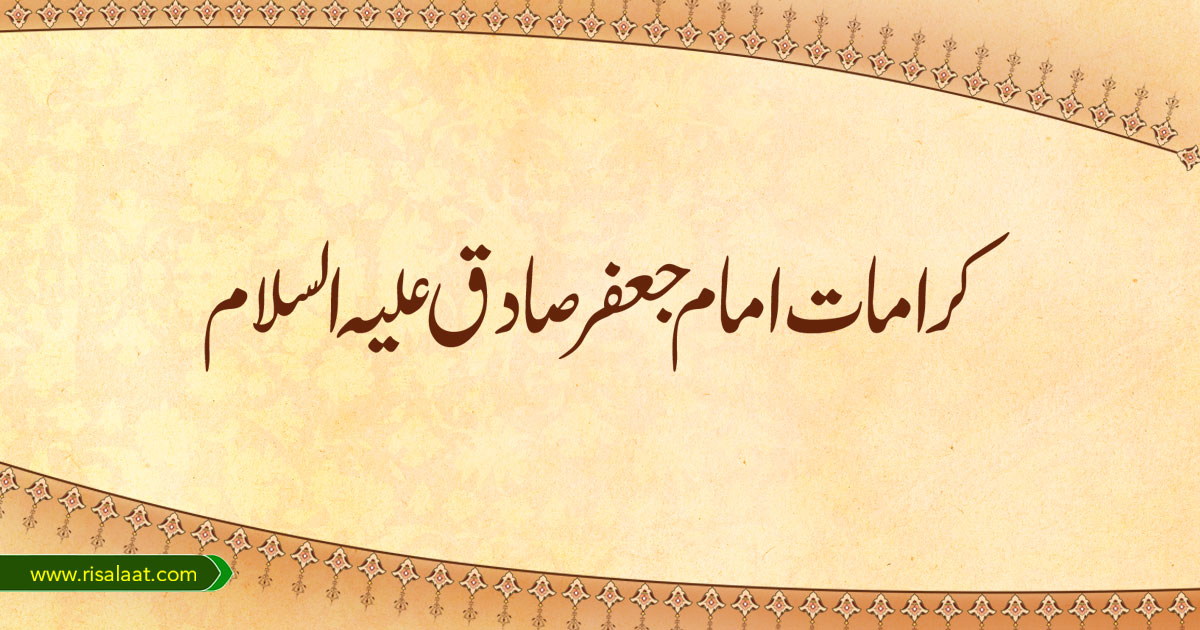 کرامات امام جعفر صادق علیہ السلام
www.risalaat.com